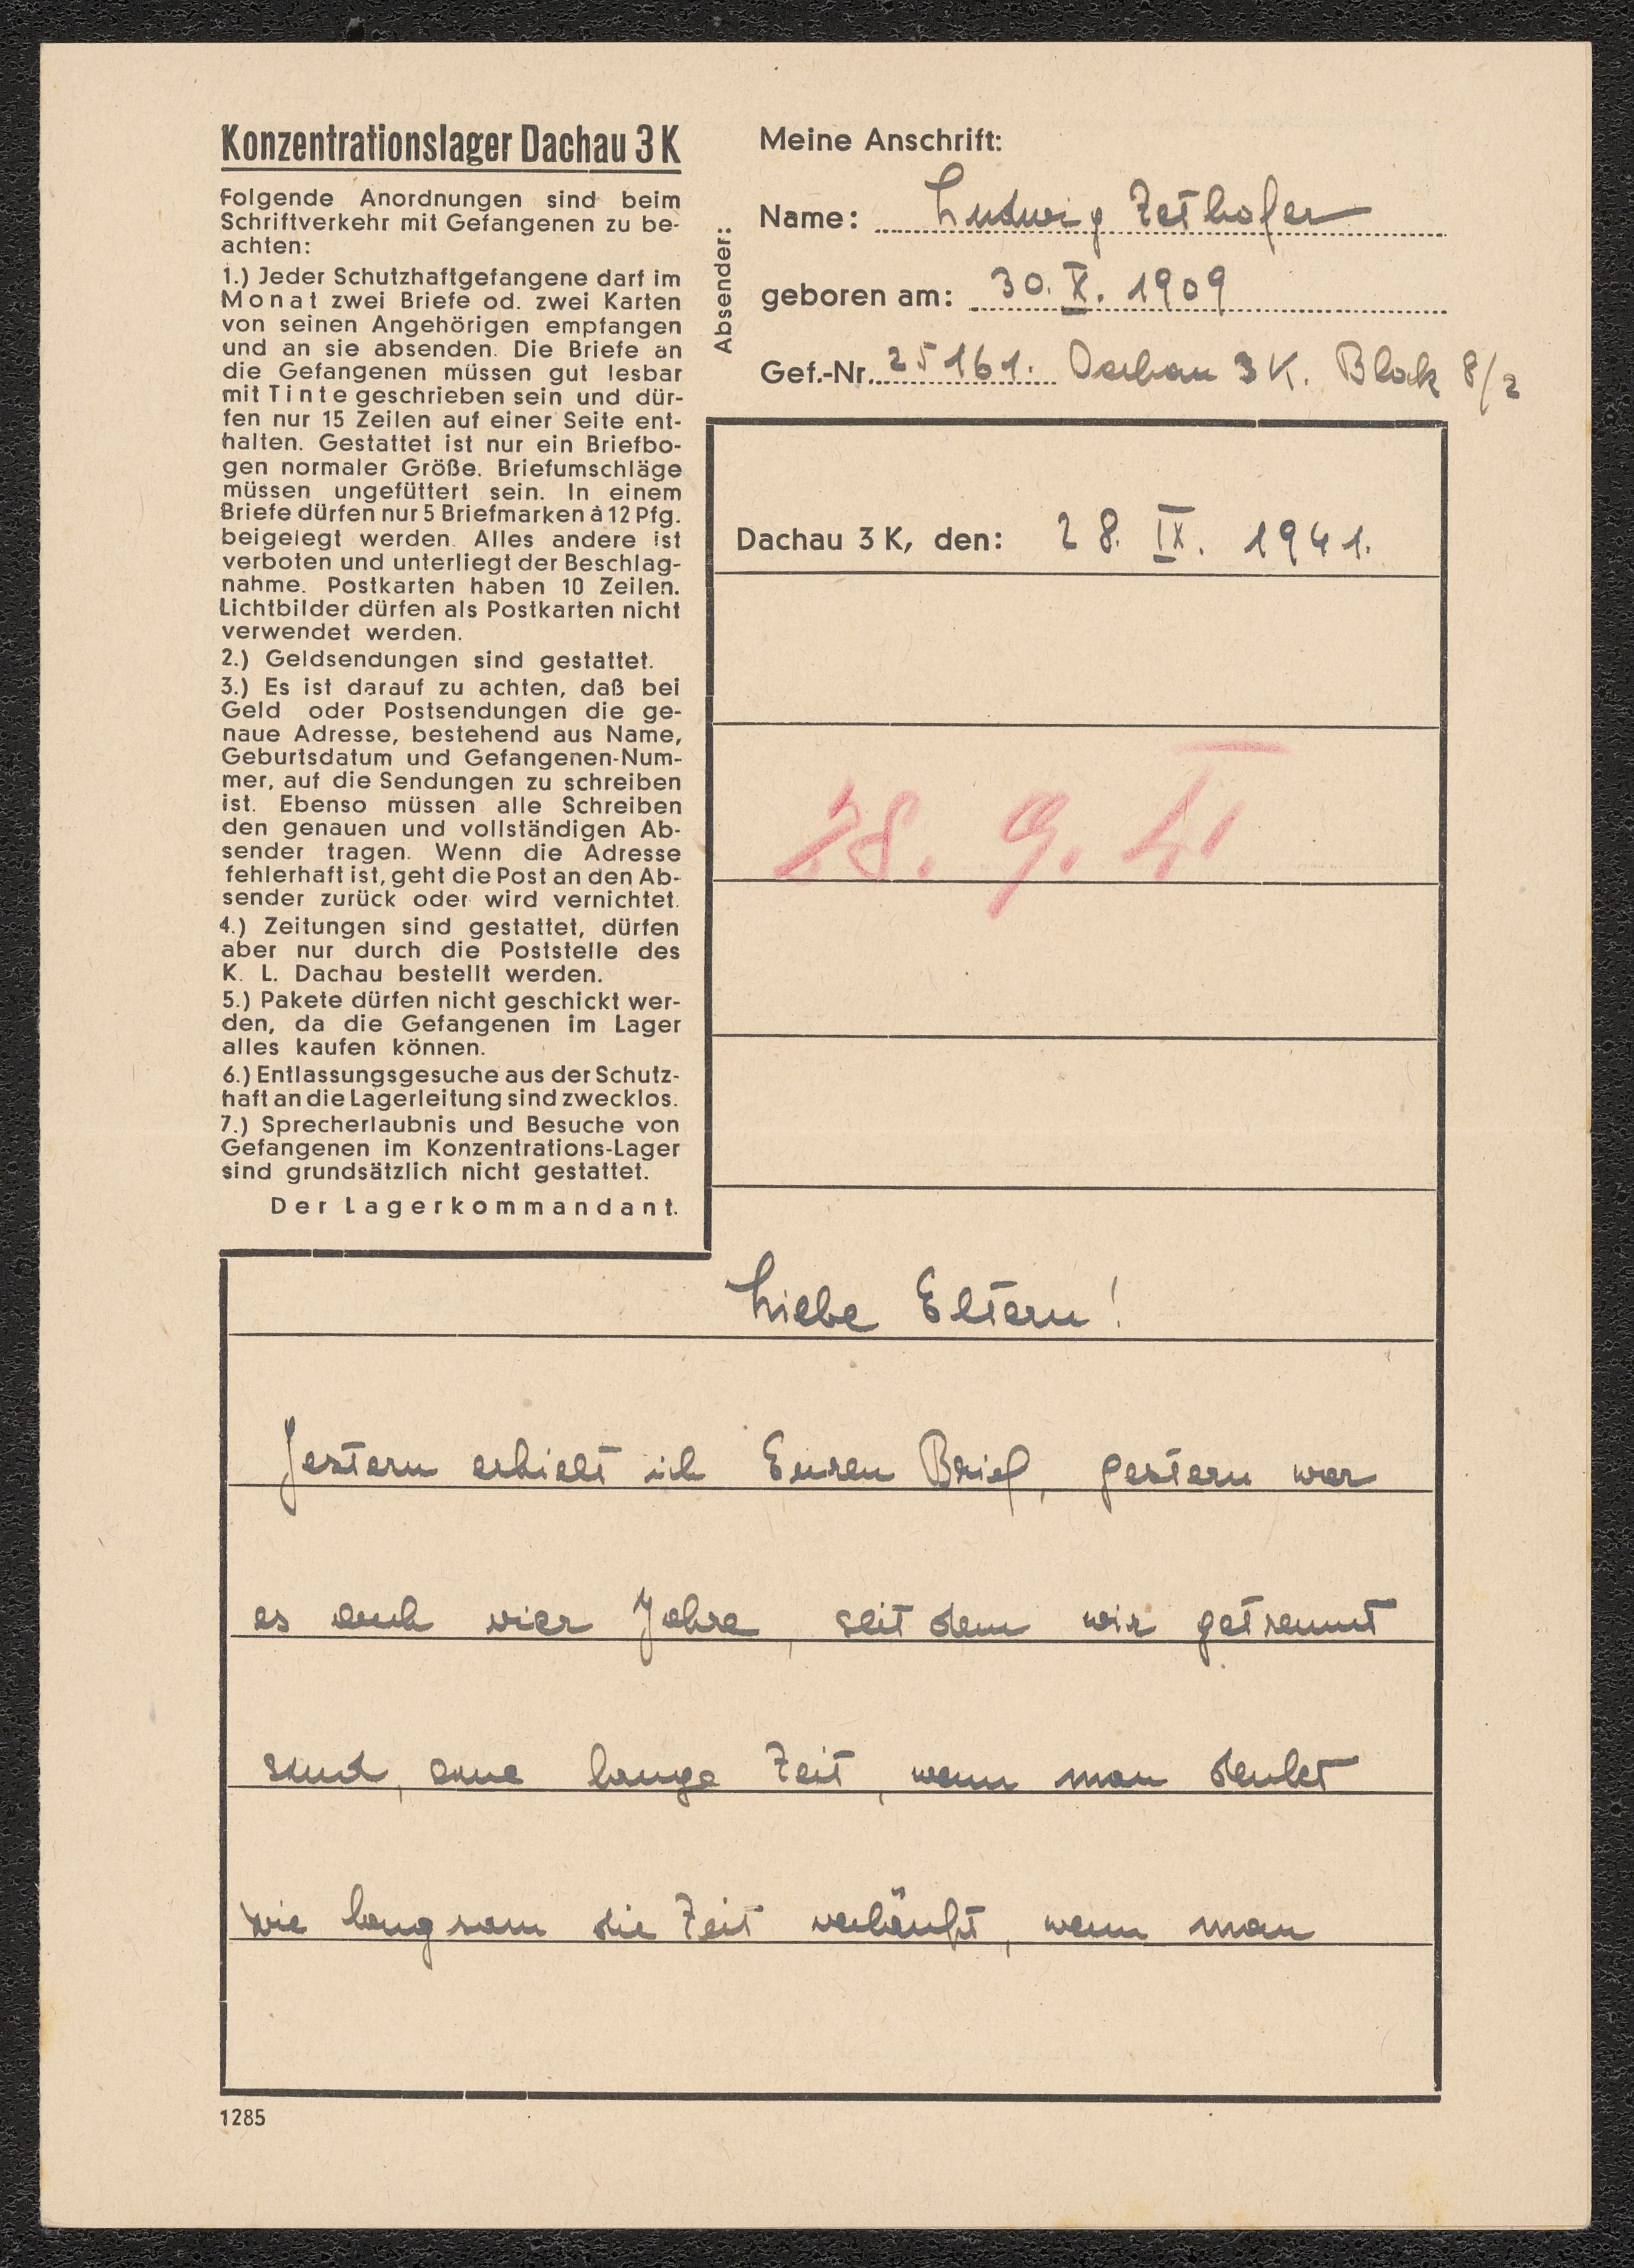 Konzentrationslager Dachau 3 K
Folgende Anordnungen sind beim
Schriftverkehr mit Gefangenen zu be-
achten:
1.) Jeder Schutzhaftgefangene darf im
Monat zwei Briefe od. zwei Karten
von seinen Angehörigen empfangen
und an sie absenden. Die Briefe an
die Gefangenen müssen gut lesbar
mit Tinte geschrieben sein und dür-
fen nur 15 Zeilen auf einer Seite ent-
halten. Gestattet ist nur ein Briefbo-
gen normaler Größe. Briefumschläge
müssen ungefüttert sein. In einem
Briefe dürfen nur 5 Briefmarken à 12 Pfg.
beigelegt werden. Alles andere ist
verboten und unterliegt der Beschlag-
nahme. Postkarten haben 10 Zeilen.
Lichtbilder dürfen als Postkarten nicht
verwendet werden.
2.) Geldsendungen sind gestattet.
3.) Es ist darauf zu achten, daß bei
Geld oder Postsendungen die ge-
naue Adresse, bestehend aus Name,
Geburtsdatum und Gefangenen-Num-
mer, auf die Sendungen zu schreiben
ist. Ebenso müssen alle Schreiben
den genauen und vollständigen Ab-
sender tragen. Wenn die Adresse
fehlerhaft ist, geht die Post an den Ab-
sender zurück oder wird vernichtet.
4.) Zeitungen sind gestattet, dürfen
aber nur durch die Poststelle des
K. L. Dachau bestellt werden.
5.) Pakete dürfen nicht geschickt wer-
den, da die Gefangenen im Lager
alles kaufen können.
6.) Entlassungsgesuche aus der Schutz-
haft an die Lagerleitung sind zwecklos.
7.) Sprecherlaubnis und Besuche von
Gefangenen im Konzentrations-Lager
sind grundsätzlich nicht gestattet.
Der Lagerkommandant.
Absender:
Meine Anschrift:
Name: Ludwig Zethofer
geboren am: 30. X. 1909
Gef.-Nr. 25161. Dachau 3 K. Block 8/2
Dachau 3 K, den: 28. IX. 1941.
28. 9. 41
Liebe Eltern!
Gestern erhielt ich Euren Brief, gestern war
es auch vier Jahre, seit dem wir getrennt
sind, eine lange Zeit, wenn man denket
wie langsam die Zeit verläuft, wenn man
1285